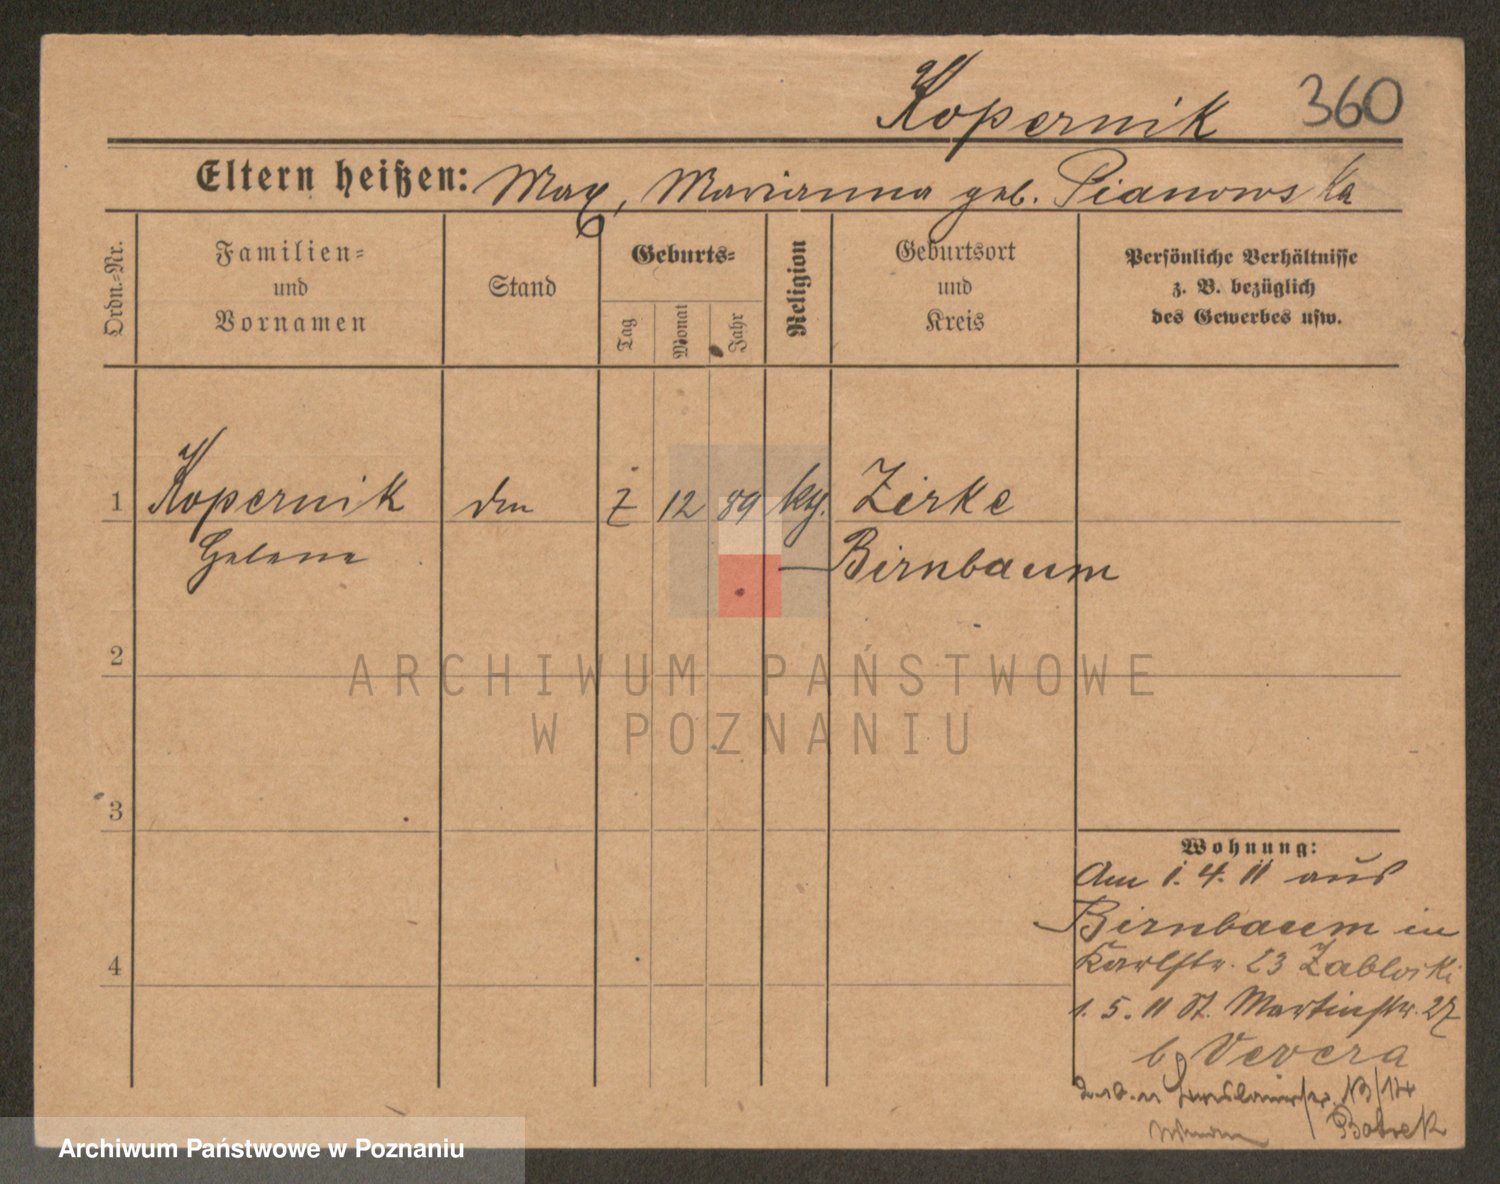 Kopernik 360
Eltern heißen: Max, Marianna geb. Pianowska
Ordn.=Nr.
Familien=
und
Vornamen
Stand
Geburts=
Tag
Monat
Jahr
Religion
Geburtsort
und
Kreis
Persönliche Verhältnisse
z. B. bezüglich
des Gewerbes usw.
1 Kopernik 7 12 89 Zirke
Helene Birnbaum
2
ARCHIWUM PAŃSTWOWE
W POZNANIU
3
Wohnung:
Am 1. 4. 11 aus
Birnbaum in
4
Karlstr. 23 Zabloski
1. 5. 11 St. Martinstr. 27
b Vevera
Archiwum Państwowe w Poznaniu